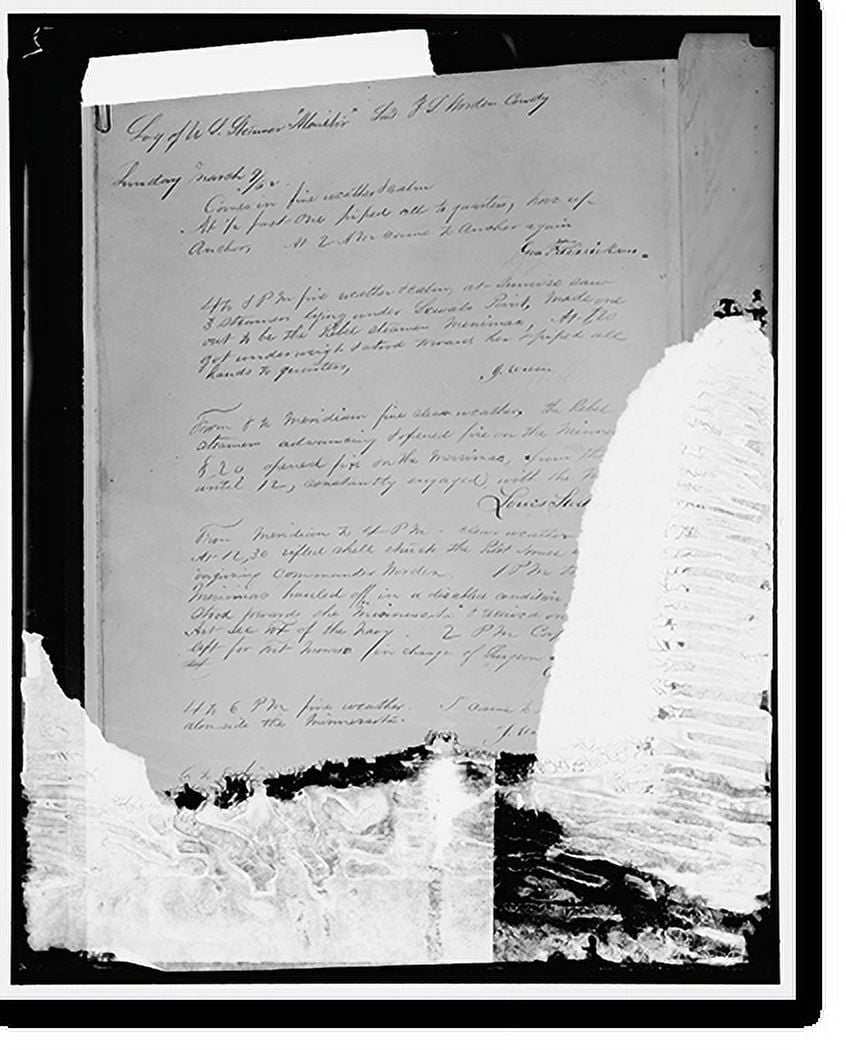 Log of U.S. Steamer "Monitor" Lieut J L Worden Comdg
Sunday March 9/62.
Comes in fine weather & calm
At ½ past One piped all to quarters, hove up
Anchor, At 2 A M came to Anchor again
Geo Frederickson.
4 to 8 P M fine weather & calm, at Sunrise saw
3 steamers lying under Sewals Point, made one
out to be the Rebel steamer Merrimac, At 7.20
got underweigh & stood towards her & piped all
hands to quarters,
From 8 to Meridian fine clear weather, the Rebel
steamers advancing & opened fire on the Minne
8.20 opened fire on the Merrimac, from
until 12, constantly engaged with the
Louis
From Meridian to 4 P M clear weather
At 12,30 rifled shell struck the Pilot House
injuring Commander Worden. 1 P M
Merrimac hauled off in a disabled condition
stood towards the "Minnesota" & received on
Ast Sec of the Navy. 2 P M
left for Fort Monroe in charge of Surgeon
4 to 6 P M fine weather. 5 came to
along side the Minnesota.